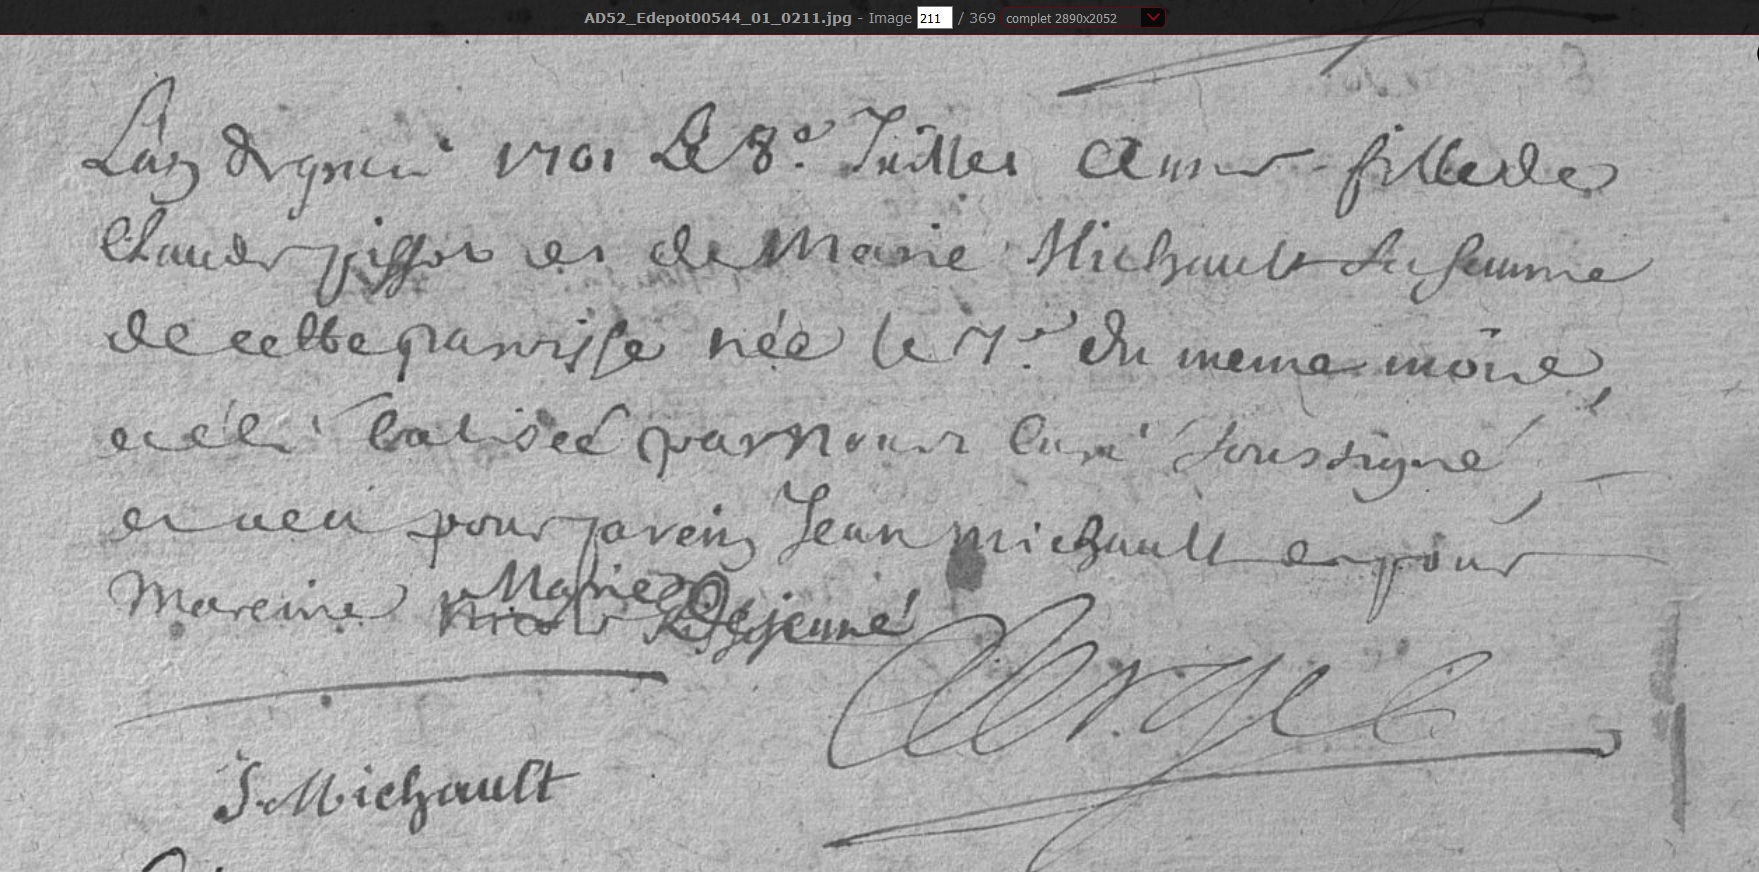 AD52_Edepot00544_01_0211.jpg - Image 211 / 369 complet 2890x2052
L'an de grace 1701 Le 8.e Juillet Anne fille de
Claude et de Marie Michault sa femme
de cette paroisse née le 7.e du meme mois
et été batisée par nous curé soussigné
et a eu pour parein Jean michault et pour
Mareine Marie Dejeune
Clergé
J. Michault